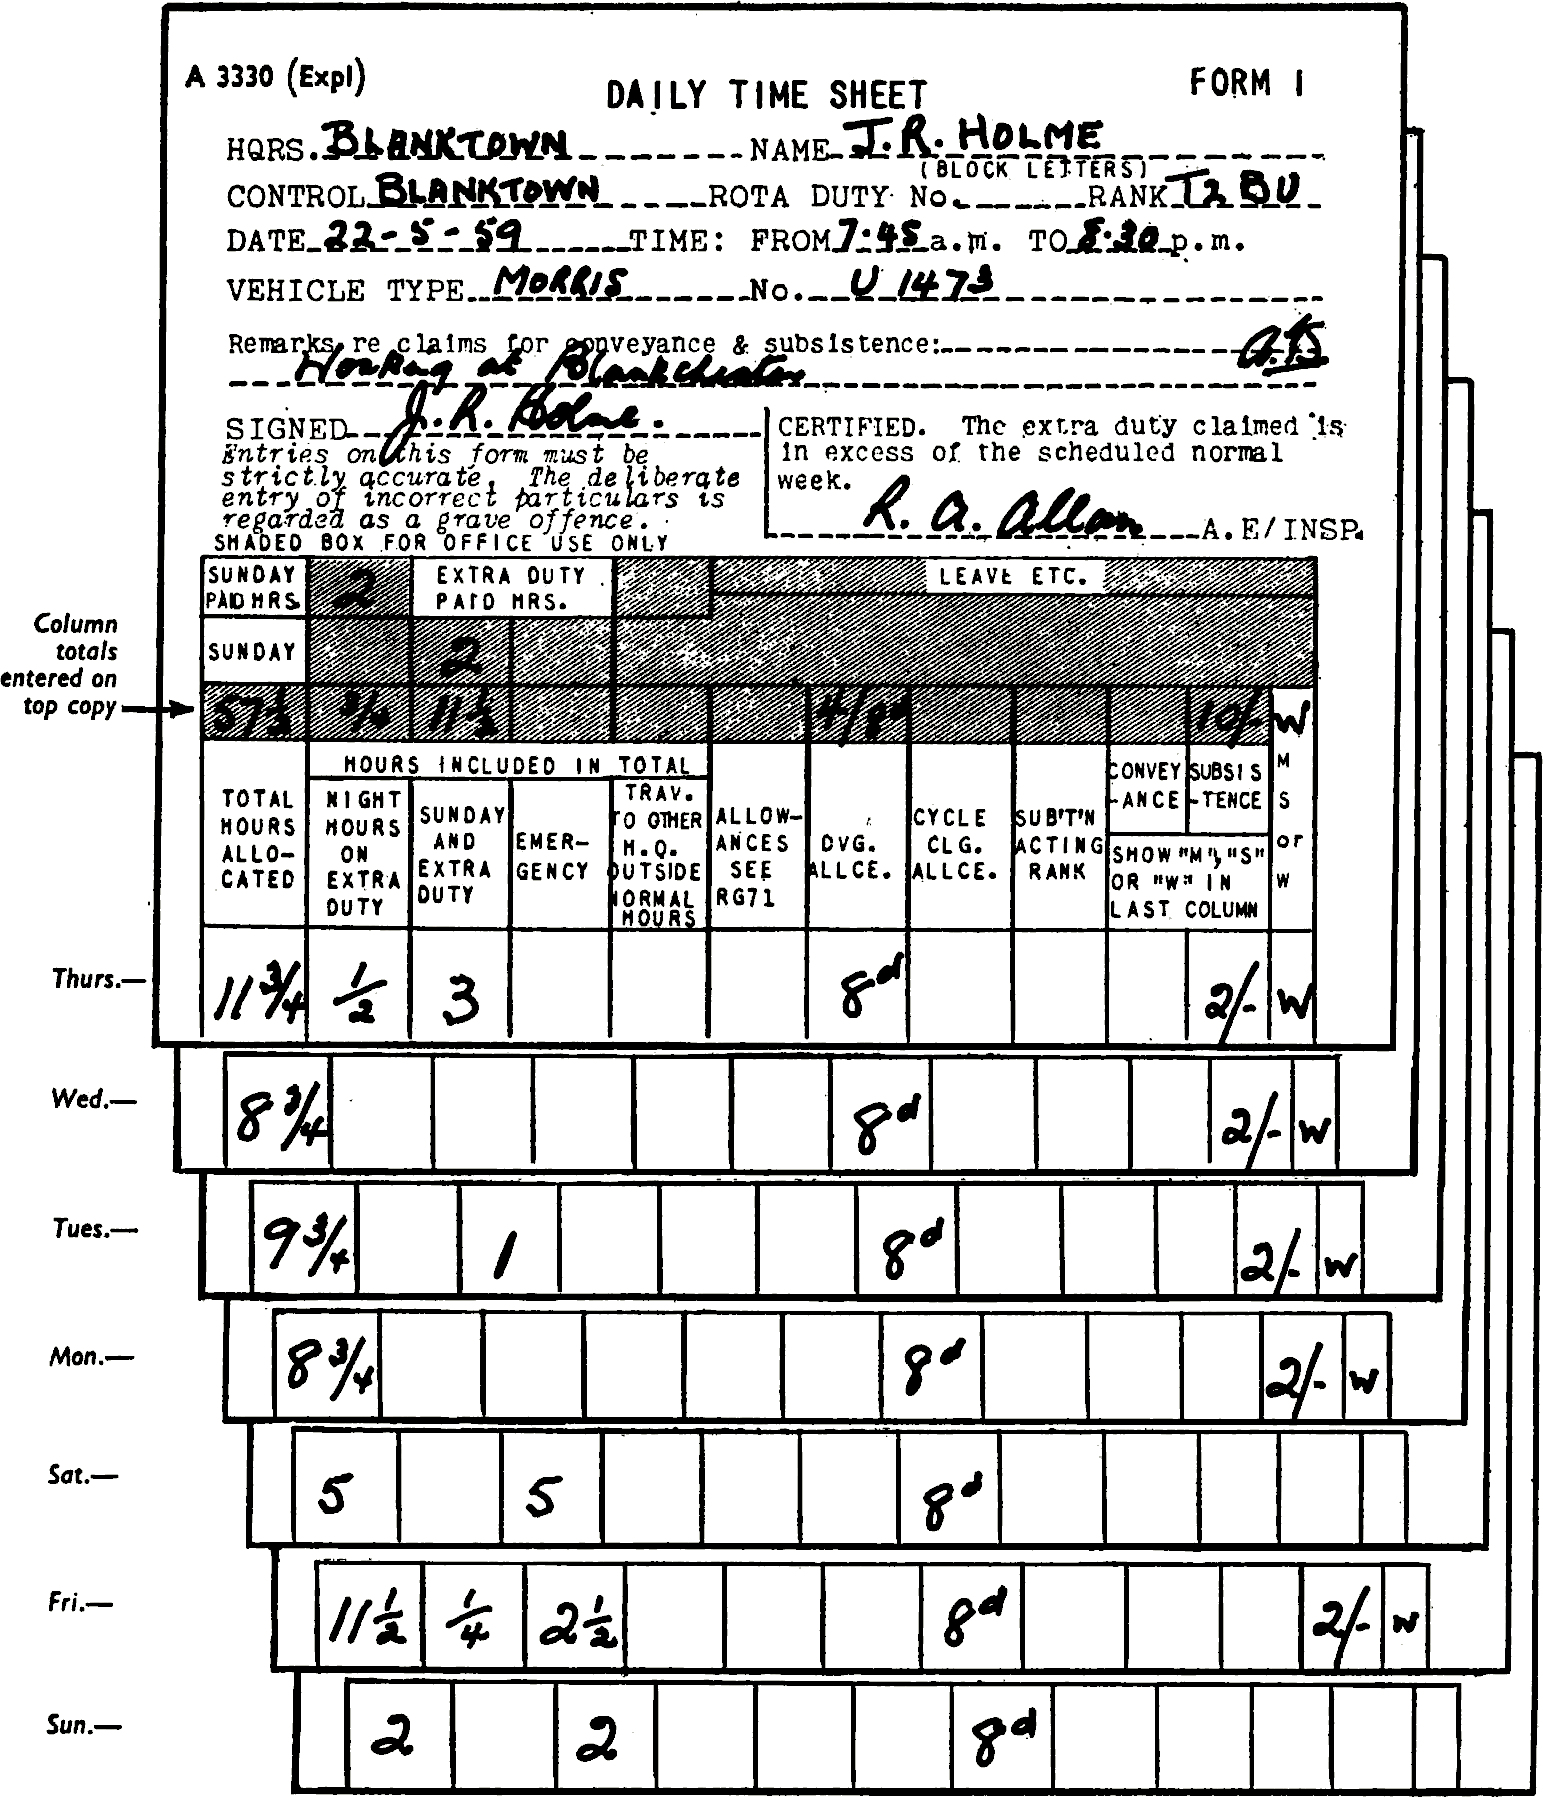 A 3330 (Expl)
DAILY TIME SHEET
FORM 1
HQRS. BLANKTOWN NAME J.R. HOLME
(BLOCK LETTERS)
CONTROL BLANKTOWN ROTA DUTY No. RANK T2 BU
DATE 22-5-59 TIME: FROM 7.45 a.m. TO 8.30 p.m.
VEHICLE TYPE MORRIS No. U 1473
Remarks re claims for conveyance & subsistence:
Working at Blankchester
SIGNED J.R. Holme.
Entries on this form must be
strictly accurate. The deliberate
entry of incorrect particulars is
regarded as a grave offence.
CERTIFIED. The extra duty claimed is
in excess of the scheduled normal
week.
R. A. Allan A.E/INSP.
SHADED BOX FOR OFFICE USE ONLY
SUNDAY PAID HRS. 2 EXTRA DUTY PAID HRS. LEAVE ETC.
SUNDAY 2
Column
totals
entered on
top copy
57½ ¾ 11½ 4/8d 10/- W
HOURS INCLUDED IN TOTAL
TOTAL HOURS ALLO-CATED
NIGHT HOURS ON EXTRA DUTY
SUNDAY AND EXTRA DUTY
EMER-GENCY
TRAV. TO OTHER H.Q. OUTSIDE NORMAL HOURS
ALLOW-ANCES SEE RG71
DVG. ALLCE.
CYCLE CLG. ALLCE.
SUB'T'N ACTING RANK
CONVEY-ANCE
SUBSIS-TENCE
SHOW "M", "S" OR "W" IN LAST COLUMN
M S or W
Thurs.— 11¾ ½ 3 8d 2/- W
Wed.— 8¾ 8d 2/- W
Tues.— 9¾ 1 8d 2/- W
Mon.— 8¾ 8d 2/- W
Sat.— 5 5 8d
Fri.— 11½ ¼ 2½ 8d 2/- W
Sun.— 2 2 8d